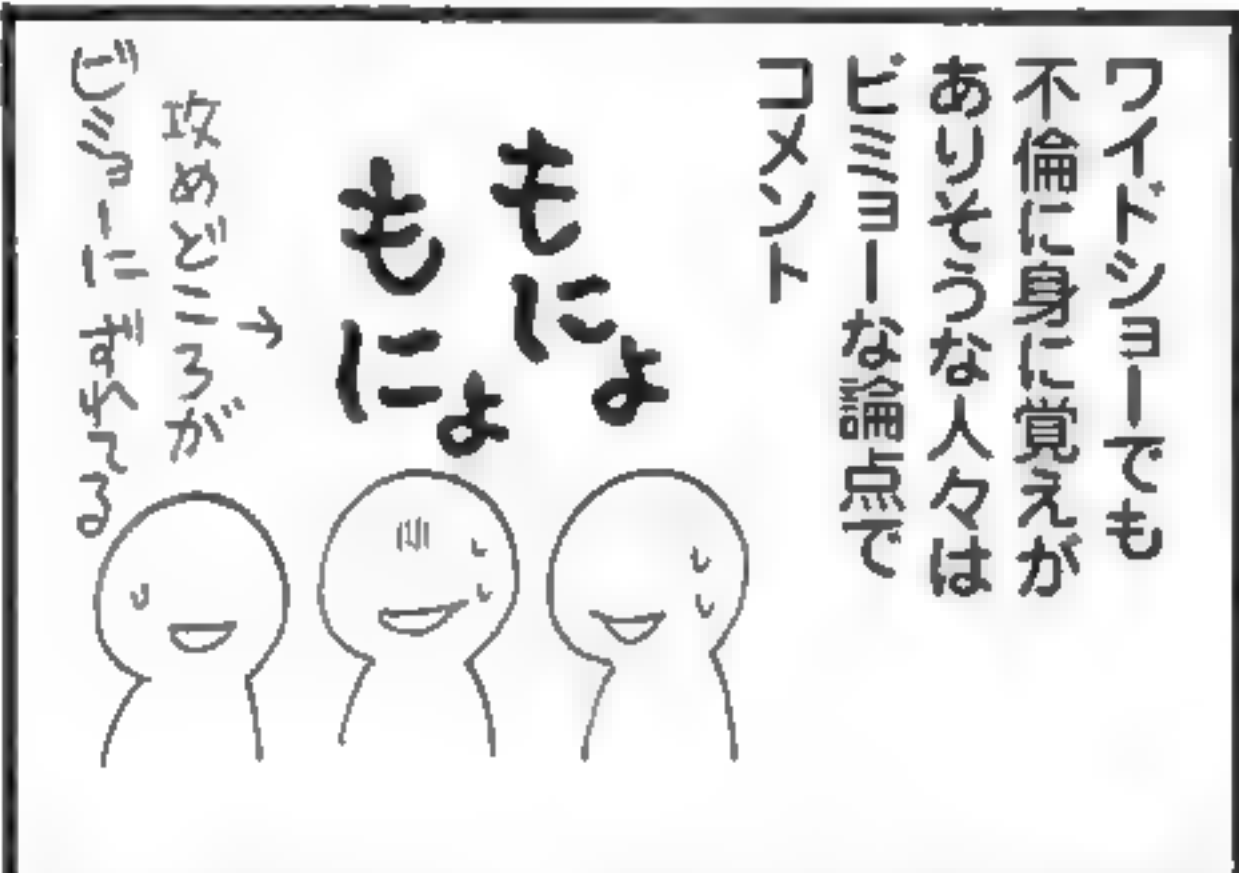 ワイドショーでも
不倫に身に覚えが
ありそうな人々は
ビミョーな論点で
コメント
もにょ
もにょ
→
攻めどころが
ビミョーにずれてる